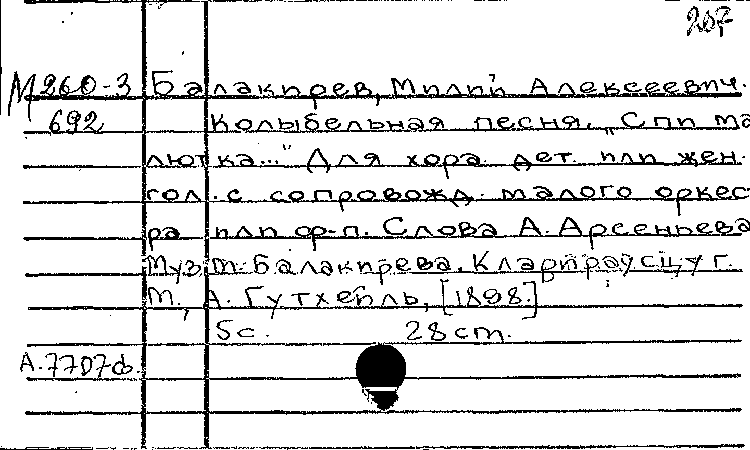 207
М 260-3 Балакирев, Милий Алексеевич.
692 Колыбельная песня. „Спи ма
лютка..." Для хора дет. или жен.
гол. с сопровожд. малого оркес
ра или ф-п. Слова А. Арсеньева
Муз. М. Балакирева.
М., А. Гутхейль, [1898.]
5 с. 28 cm.
А.7707ф.